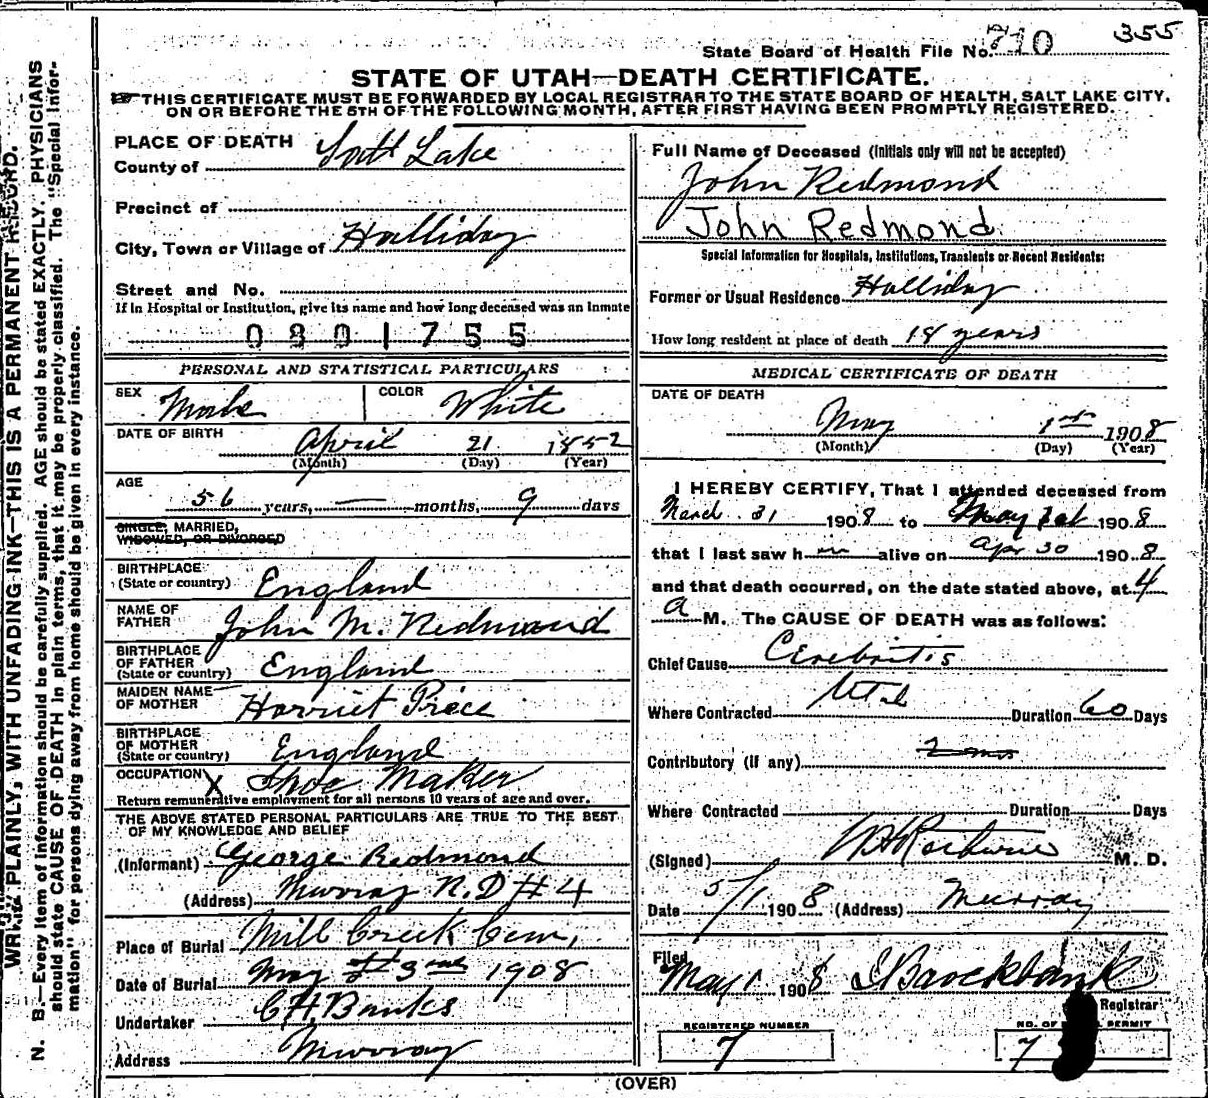 355
State Board of Health File No. 710
STATE OF UTAH—DEATH CERTIFICATE.
THIS CERTIFICATE MUST BE FORWARDED BY LOCAL REGISTRAR TO THE STATE BOARD OF HEALTH, SALT LAKE CITY,
ON OR BEFORE THE 5TH OF THE FOLLOWING MONTH, AFTER FIRST HAVING BEEN PROMPTLY REGISTERED.
PLACE OF DEATH
County of Salt Lake
Precinct of
City, Town or Village of Halliday
Street and No.
If in Hospital or Institution, give its name and how long deceased was an inmate
0801755
PERSONAL AND STATISTICAL PARTICULARS
SEX Male COLOR White
DATE OF BIRTH April 21 1852
(Month) (Day) (Year)
AGE
56 years, — months, 9 days
SINGLE, MARRIED,
WIDOWED, OR DIVORCED
BIRTHPLACE
(State or country) England
NAME OF
FATHER John M. Redmond
BIRTHPLACE
OF FATHER
(State or country) England
MAIDEN NAME
OF MOTHER Harriet Price
BIRTHPLACE
OF MOTHER
(State or country) England
OCCUPATION X Shoe Maker
Return remunerative employment for all persons 10 years of age and over.
THE ABOVE STATED PERSONAL PARTICULARS ARE TRUE TO THE BEST
OF MY KNOWLEDGE AND BELIEF
(Informant) George Redmond
(Address) Murray R.D #4
Place of Burial Mill Creek Cem,
Date of Burial May 3 1908
Undertaker C.H. Banks
Address Murray
Full Name of Deceased (Initials only will not be accepted)
John Redmond
John Redmond
Special Information for Hospitals, Institutions, Transients or Recent Residents:
Former or Usual Residence Halliday
How long resident at place of death 18 years
MEDICAL CERTIFICATE OF DEATH
DATE OF DEATH
May 1st 1908
(Month) (Day) (Year)
I HEREBY CERTIFY, That I attended deceased from
March 31 1908 to May 1st 1908
that I last saw him alive on Apr 30 1908
and that death occurred, on the date stated above, at 4
a M. The CAUSE OF DEATH was as follows:
Chief Cause Cerebritis
Where Contracted Utah Duration 60 Days
Contributory (if any) 2 mos
Where Contracted Duration Days
(Signed) M. D.
Date 5/1 1908 (Address) Murray
Filed
May 1 1908 Brockbank
Registrar
REGISTERED NUMBER
7
NO. OF PERMIT
7
(OVER)
WRITE PLAINLY, WITH UNFADING INK—THIS IS A PERMANENT RECORD.
N. B.—Every item of information should be carefully supplied. AGE should be stated EXACTLY. PHYSICIANS
should state CAUSE OF DEATH in plain terms, that it may be properly classified. The "Special Infor-
mation" for persons dying away from home should be given in every instance.